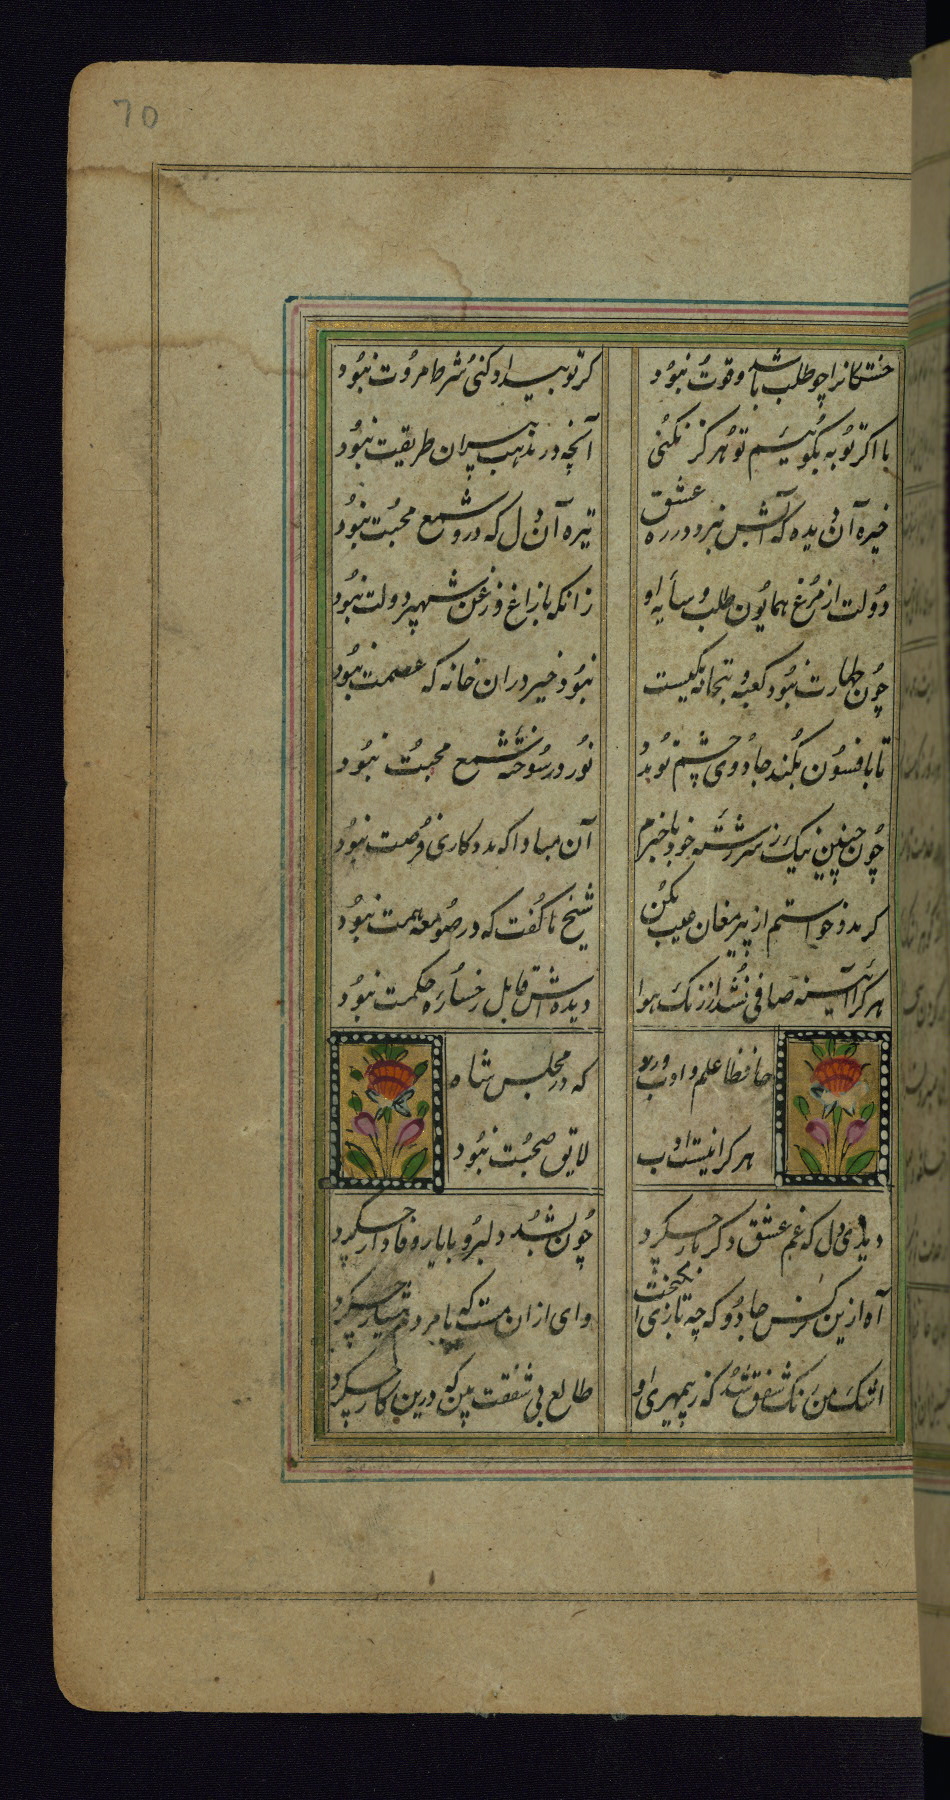 70
خستکانرا چو طلب باشد و قوت نبود
کر تو بیداد کنی شرط مروت نبود
ما اکر توبه بکوئیم تو هرکز نکنی
آنچه در مذهب پیران طریقت نبود
خیره آن دیده که آبش نبرد در ره عشق
تیره آن دل که درو شمع محبت نبود
دولت از مرغ همایون طلب و سایه او
زانکه با زاغ و زغن شهپر دولت نبود
چون طهارت نبود کعبه و بتخانه یکیست
نبود خیر دران خانه که عصمت نبود
تا بافسون بکند جادوی چشم تو
نور در سوخته شمع محبت نبود
چون چنین نیک ز سررشته خود با خبرم
آن مبادا که مددکاری فرصت نبود
کر مدد خواستم از پیر مغان عیب مکن
شیخ ما کفت که در صومعه همت نبود
هرکرا آینه صافی نشد از زنک هوا
دیده اش قابل رخساره حکمت نبود
حافظا علم و ادب ورز
که در مجلس شاه
هرکرا نیست ادب
لایق صحبت نبود
دیدی دل که غم عشق دکر بار چکرد
چون بشد دلبر و با یار وفادار چکرد
آه ازین نرکس جادو که چه بازی انکیخت
وای ازان مست که با مردم هشیار چکرد
اشک من رنک شفق شد که ز بیمهری او
طالع بی شفقت بین که درین کار چکرد